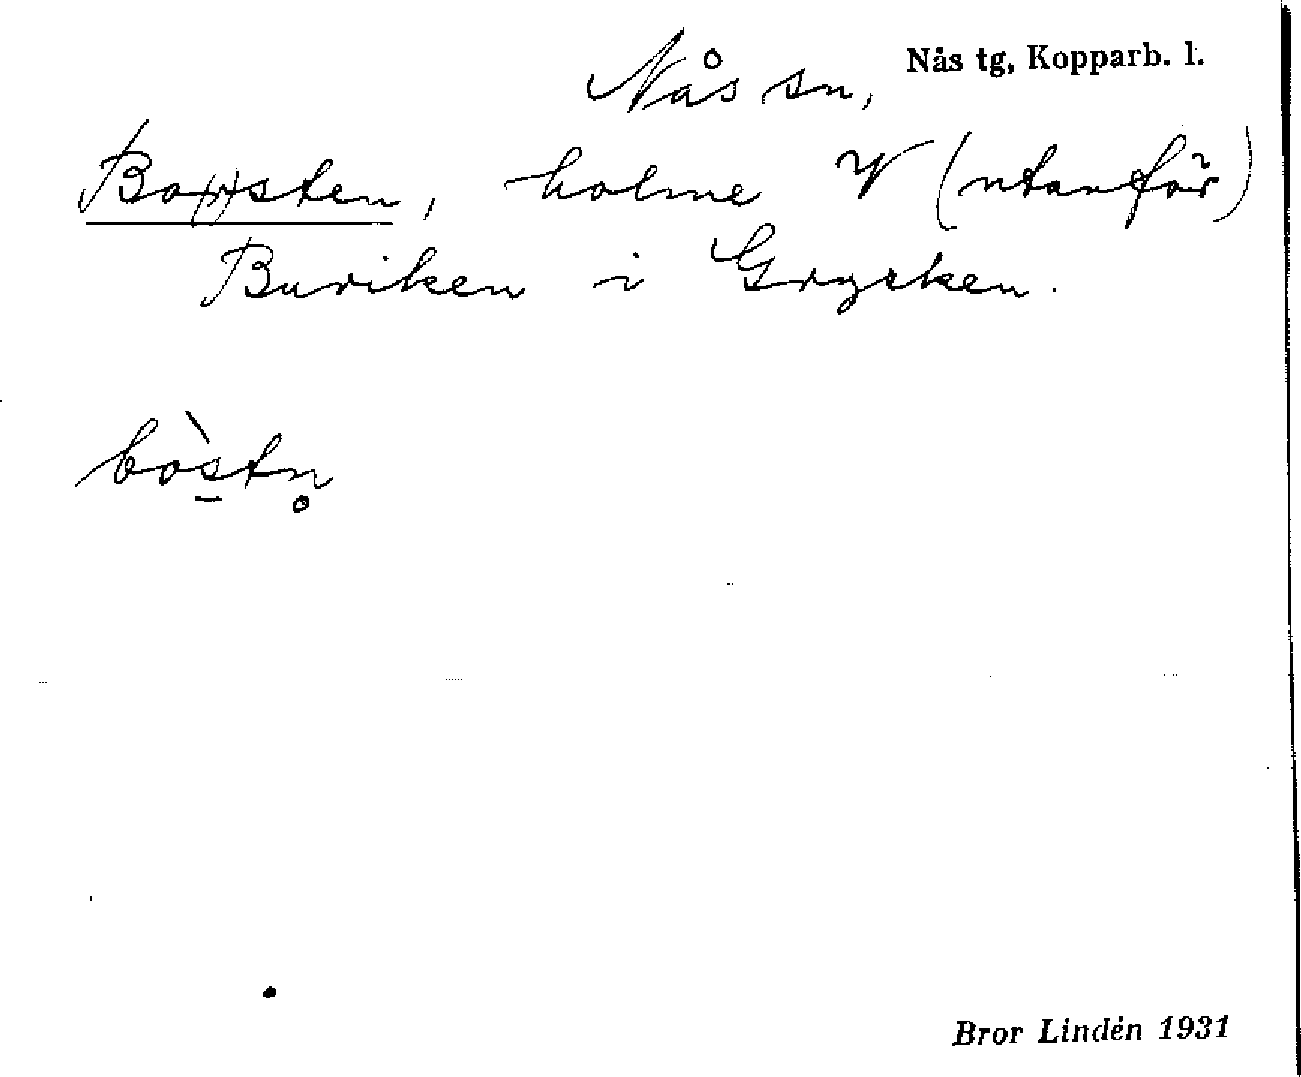 Nås tg, Kopparb. l.
Nås sn,
Bossten, holme V (utanför)
Buriken i Grycken.
bòstn̥
Bror Lindén 1931